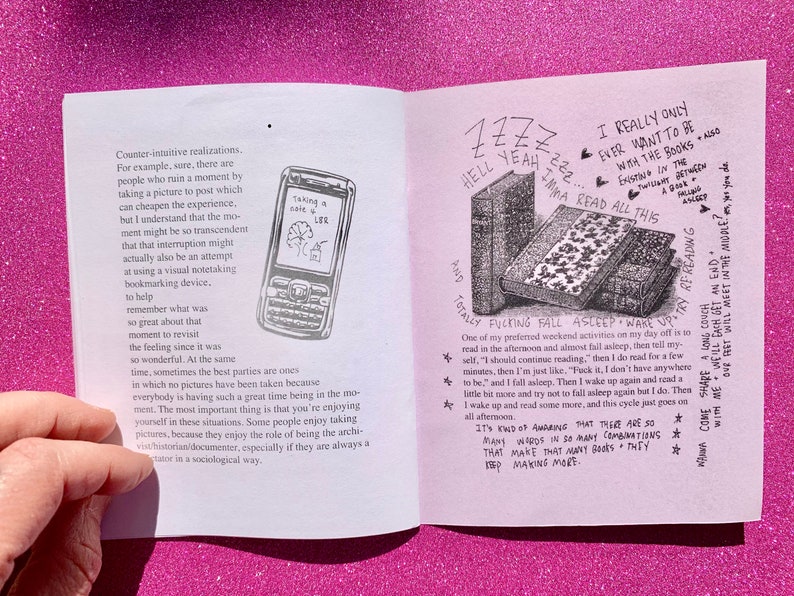 Counter-intuitive realizations.
For example, sure, there are
people who ruin a moment by
taking a picture to post which
can cheapen the experience,
but I understand that the mo-
ment might be so transcendent
that that interruption might
actually also be an attempt
at using a visual notetaking
bookmarking device,
to help
remember what was
so great about that
moment to revisit
the feeling since it was
so wonderful. At the same
time, sometimes the best parties are ones
in which no pictures have been taken because
everybody is having such a great time being in the mo-
ment. The most important thing is that you're enjoying
yourself in these situations. Some people enjoy taking
pictures, because they enjoy the role of being the archi-
vist/historian/documenter, especially if they are always a
ctator in a sociological way.
Taking a
note 4
L8R
ZZZZ zzz...
HELL YEAH
IMMA READ ALL THIS
AND TOTALLY FUCKING FALL ASLEEP + WAKE UP + TRY RE-READING
I REALLY ONLY
EVER WANT TO BE
WITH THE BOOKS + ALSO
EXISTING IN THE
TWILIGHT BETWEEN
A BOOK +
FALLING
ASLEEP
One of my preferred weekend activities on my day off is to
read in the afternoon and almost fall asleep, then tell my-
self, "I should continue reading," then I do read for a few
minutes, then I'm just like, "Fuck it, I don't have anywhere
to be," and I fall asleep. Then I wake up again and read a
little bit more and try not to fall asleep again but I do. Then
I wake up and read some more, and this cycle just goes on
all afternoon.
IT'S KIND OF AMAZING THAT THERE ARE SO
MANY WORDS IN SO MANY COMBINATIONS
THAT MAKE THAT MANY BOOKS + THEY
KEEP MAKING MORE.
WANNA COME SHARE A LONG COUCH
WITH ME + WE'LL EACH GET AN END +
OUR FEET WILL MEET IN THE MIDDLE? yes, yes you do.